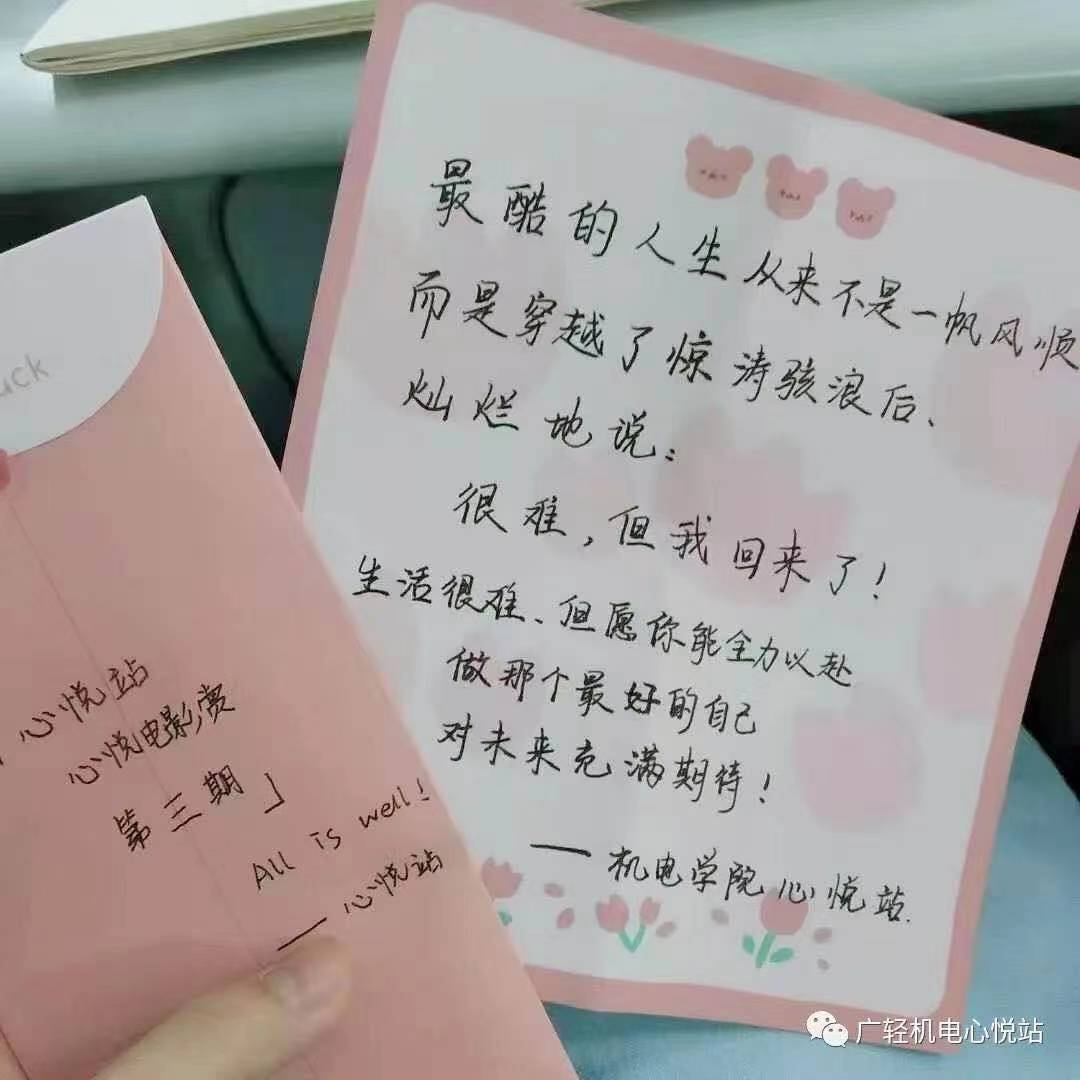 最酷的人生从来不是一帆风顺
而是穿越了惊涛骇浪后、
灿烂地说：
很难，但我回来了！
生活很难、但愿你能全力以赴
做那个最好的自己
对未来充满期待！
——机电学院心悦站.
uck
心悦站
心悦电影赏
第三期」
All is well!
——心悦站
广轻机电心悦站